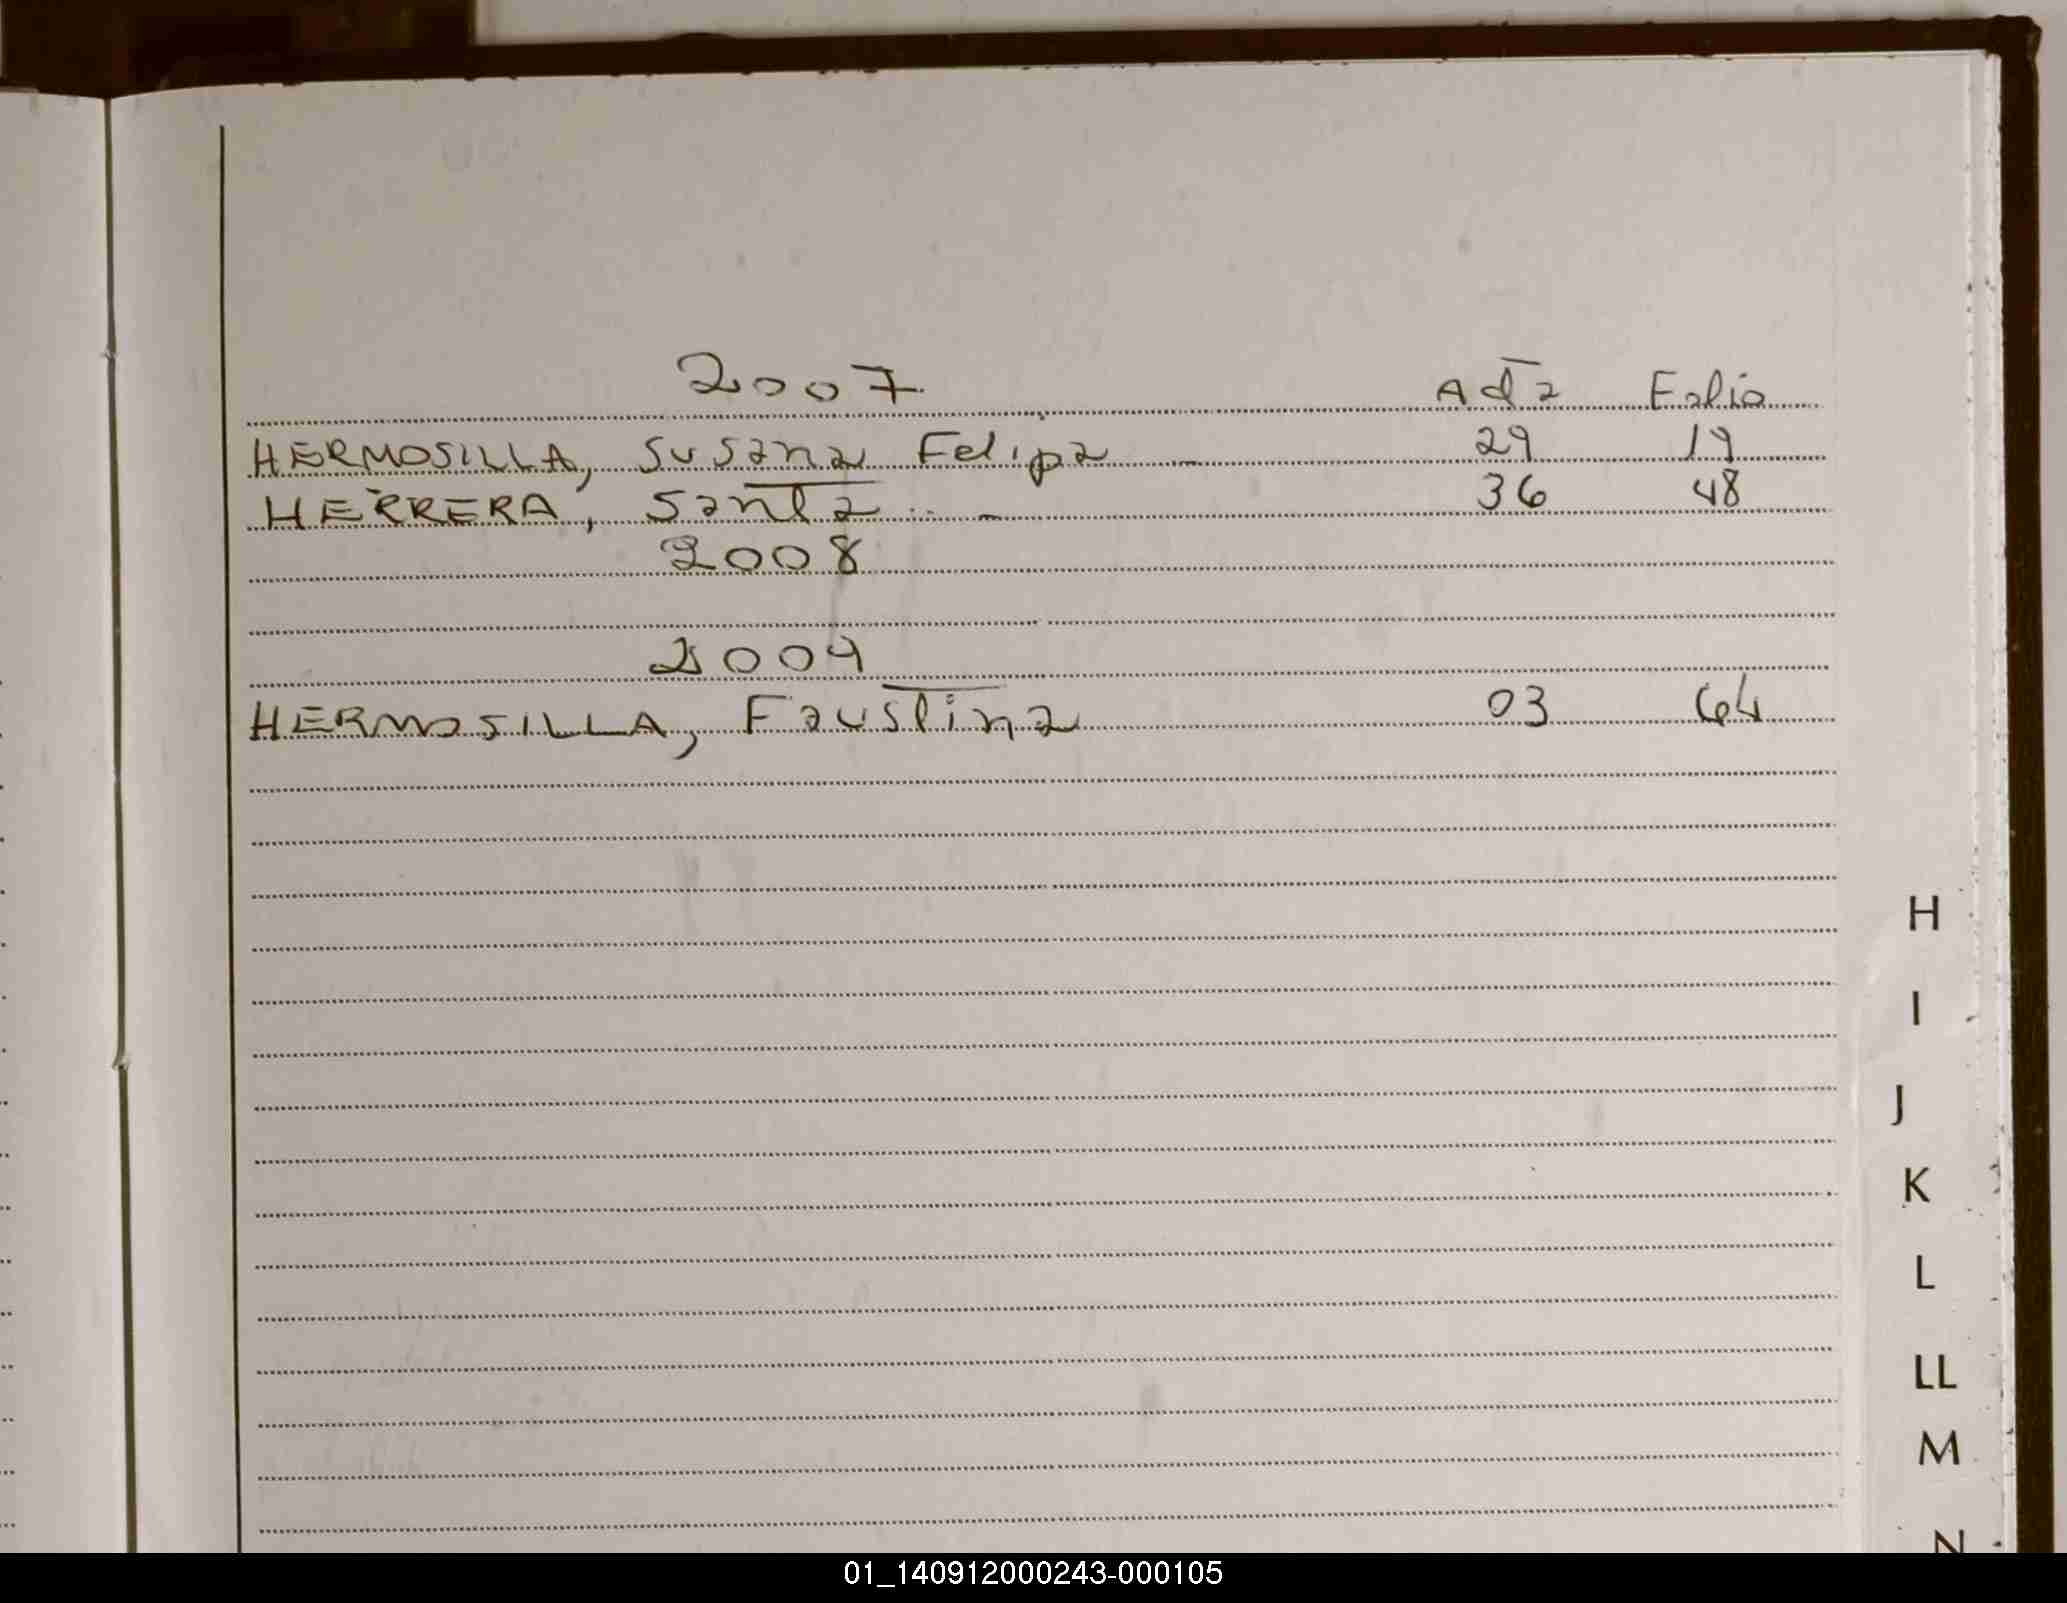 2007 Acta Folio
HERMOSILLA, Susana Felipa - 29 19
HERRERA, Santa - 36 48
2008
2009
HERMOSILLA, Faustina 03 64
H
I
J
K
L
LL
M
N
01_140912000243-000105